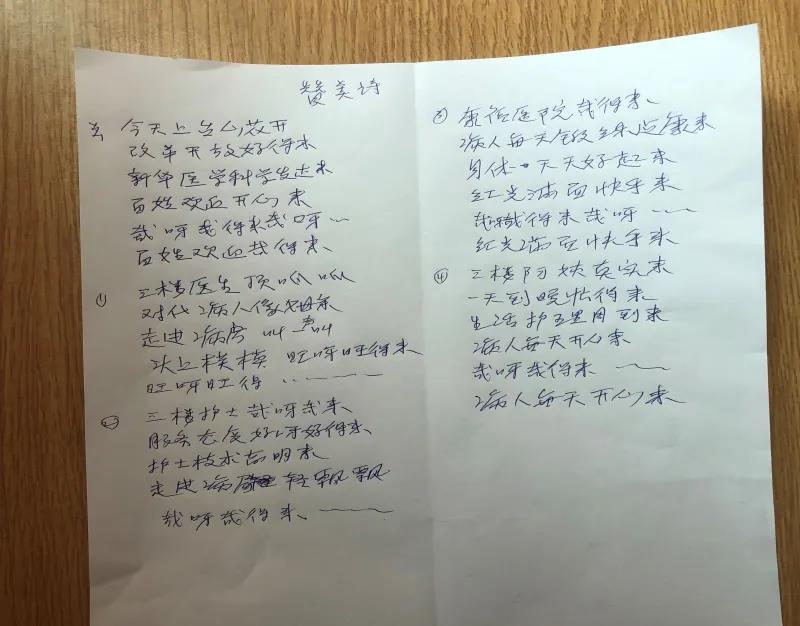 赞美诗
今天上台心花开
改革开放好得来
新华医学科学发达来
百姓欢血开心来
哉呀哉得来哉呀
百姓欢血哉得来
① 三楼医生顶呱呱
对代病人像母亲
走进病房
头上模模 旺呀旺得来
旺呀旺得
② 三楼护士哉呀哉来
服务态度好呀好得来
护士技术高明来
走进病 轻飘飘
哉呀哉得来
③ 康复医院哉得来
病人每天锻练
身体天天好起来
红光满面快乎来
哉得来哉呀
红光满面快乎来
④ 三楼阿姨真实来
一天到晚忙得来
生活护五星周到来
病人每天开心来
哉呀哉得来
病人每天开心来